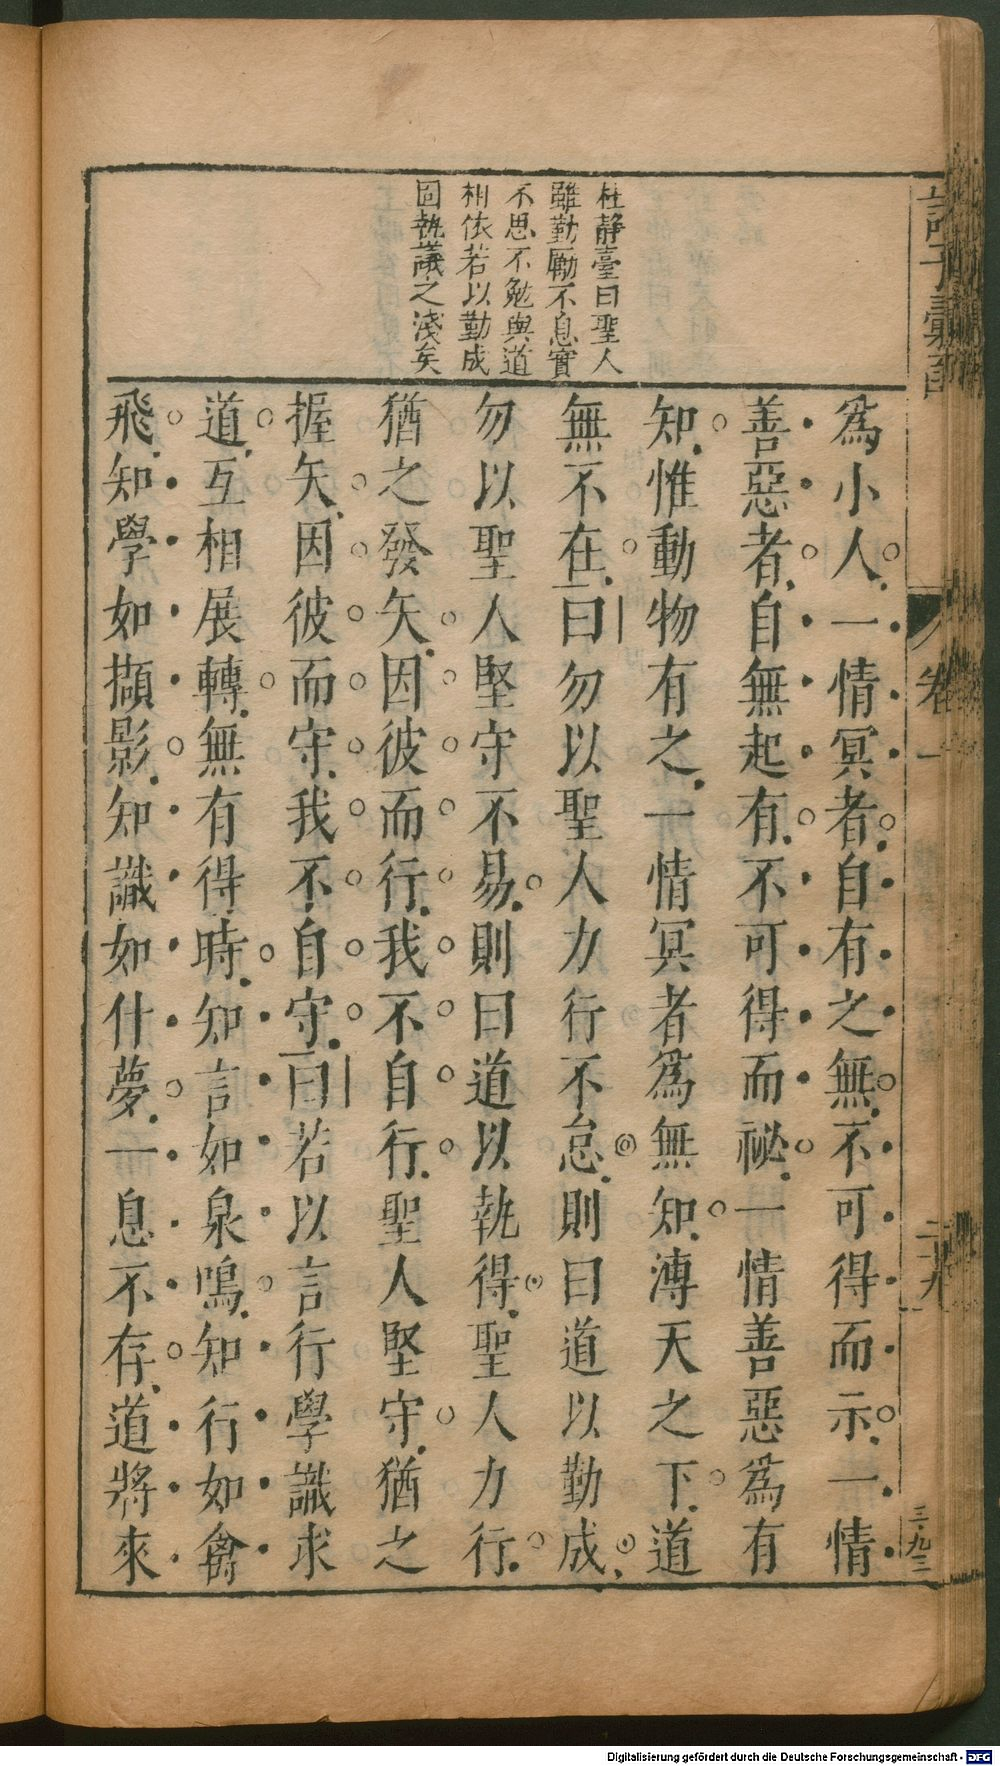 杜靜臺曰聖人
雖勤勵不息實
不思不勉與道
相依若以勤成
固執議之淺矣
為小人一情冥者自有之無不可得而示一情
善惡者自無起有不可得而祕一情善惡為有
知惟動物有之一情冥者為無知溥天之下道
無不在曰勿以聖人力行不怠則曰道以勤成
勿以聖人堅守不易則曰道以執得聖人力行
猶之發矢因彼而行我不自行聖人堅守猶之
握矢因彼而守我不自守曰若以言行學識求
道互相展轉無有得時知言如泉鳴知行如禽
飛知學如擷影知識如什夢一息不存道將來
卷一
二十九
三九二
Digitalisierung gefördert durch die Deutsche Forschungsgemeinschaft - DFG